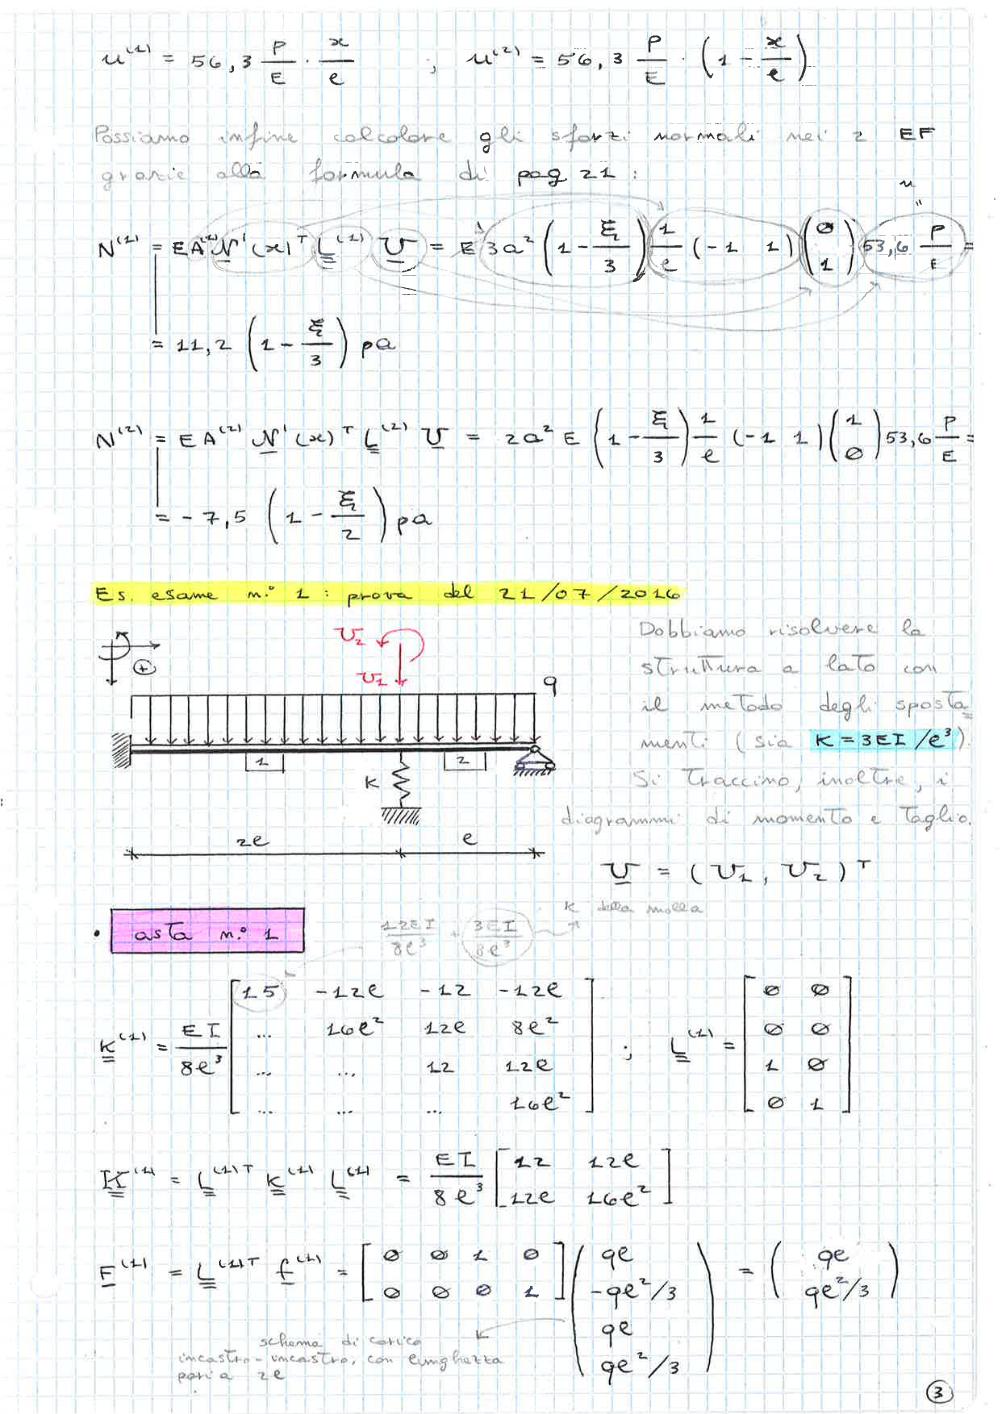 u⁽¹⁾ = 56,3 P/E · x/e ; u⁽²⁾ = 56,3 P/E · (1 - x/e)
Possiamo infine calcolare gli sforzi normali nei 2 EF
grazie alla formula di pag 21 :
N⁽¹⁾ = EA⁽¹⁾ N'(x)ᵀ L⁽¹⁾ U = E 3a² (1 - ξ/3) 1/e (-1 1) (0 1) 53,6 P/E =
u
"
= 11,2 (1 - ξ/3) pa
N⁽²⁾ = EA⁽²⁾ N'(x)ᵀ L⁽²⁾ U = 2a² E (1 - ξ/3) 1/e (-1 1) (1 0) 53,6 P/E =
= -7,5 (1 - ξ/2) pa
Es. esame n.° 1 : prova del 21/07/2016
Dobbiamo risolvere la
struttura a lato con
il metodo degli sposta
menti (sia K = 3EI/e³)
Si traccino, inoltre, i
diagrammi di momento e taglio.
U₂
U₁
+
q
1
2
K
2e
e
U = (U₁, U₂)ᵀ
K della molla
• asta n.° 1
12EI/8e³ + 3EI/8e³
K⁽¹⁾ = EI/8e³
15 -12e -12 -12e
... 16e² 12e 8e²
... ... 12 12e
... ... ... 16e²
; L⁽¹⁾ =
0 0
0 0
1 0
0 1
K⁽¹⁾ = L⁽¹⁾ᵀ K⁽¹⁾ L⁽¹⁾ = EI/8e³
12 12e
12e 16e²
F⁽¹⁾ = L⁽¹⁾ᵀ f⁽¹⁾ =
0 0 1 0
0 0 0 1
qe
-qe²/3
qe
qe²/3
=
qe
qe²/3
schema di carico
incastro-incastro, con lunghezza
pari a 2e
3